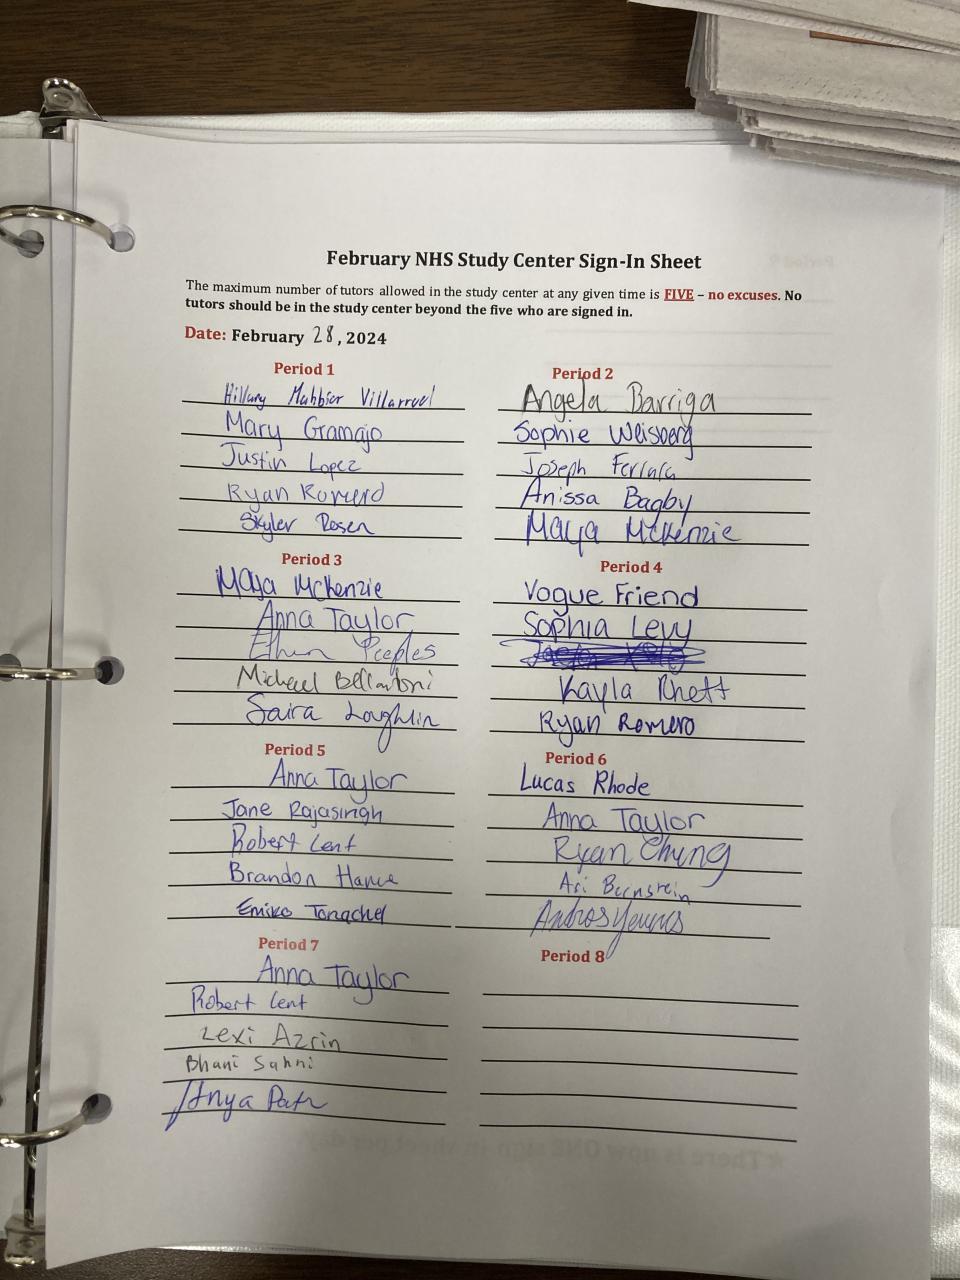 February NHS Study Center Sign-In Sheet
The maximum number of tutors allowed in the study center at any given time is FIVE – no excuses. No
tutors should be in the study center beyond the five who are signed in.
Date: February 28, 2024
Period 1
Hillary Mahbier Villarruel
Mary Gramajo
Justin Lopez
Ryan Romero
Skyler Rosen
Period 2
Angela Barriga
Sophie Weisberg
Joseph Ferrara
Anissa Bagby
Maya McKenzie
Period 3
Maya McKenzie
Anna Taylor
Ethan Peeples
Michael Bellantoni
Saira Loughlin
Period 4
Vogue Friend
Sophia Levy
Kayla Rhett
Ryan Romero
Period 5
Anna Taylor
Jane Rajasingh
Robert Lent
Brandon Hance
Emiko
Period 6
Lucas Rhode
Anna Taylor
Ryan Chung
Ari Bernstein
Period 7
Anna Taylor
Robert Lent
Lexi Azrin
Bhani Sahni
Anya
Period 8